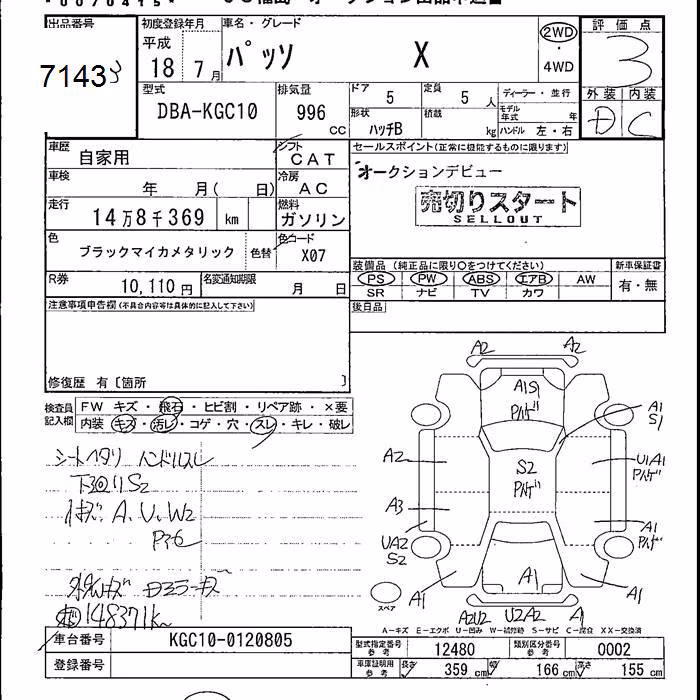 *0070415*
出品番号
71433
初度登録年月
平成
18 7月
車名・グレード
パッソ X
2WD
・
4WD
評価点
3
外装 内装
D C
型式
DBA-KGC10
排気量
996
CC
ドア
5
定員
5 人
ディーラー・並行
形状
ハッチB
積載
kg
モデル年式 年
ハンドル 左・右
車歴
自家用
シフト
CAT
車検
年 月( 日)
冷房
AC
走行
14万8千369 km
燃料
ガソリン
色
ブラックマイカメタリック
色替
色コード
X07
R券
10,110円
名変通知期限
月 日
セールスポイント(正常に機能するものに限ります)
オークションデビュー
売切りスタート
SELLOUT
装備品 (純正品に限り○をつけてください)
PS PW ABS エアB AW
SR ナビ TV カワ
新車保証書
有・無
後日品
注意事項申告欄(不具合内容等は具体的に記入して下さい)
修復歴 有〔箇所 〕
検査員記入欄
FW キズ・飛石・ヒビ割・リペア跡・×要
内装 キズ・汚レ・コゲ・穴・スレ・キレ・破レ
シートヘタリ ハンドルスレ
下回リS2
A、U、W2
148371k
A2 A2
A1S1
A1
S1
A2
S2
U1A1
A3
A1
UA2
S2
A1
A1
A1
A2U2 U2A2 A1
スペア
A-キズ E-エクボ U-凹み W-補修跡 S-サビ C-腐食 XX-交換済
車台番号
KGC10-0120805
登録番号
型式指定番号 参考
12480
類別区分番号 参考
0002
車庫証明用 参考
長さ 359 cm 幅 166 cm 高さ 155 cm